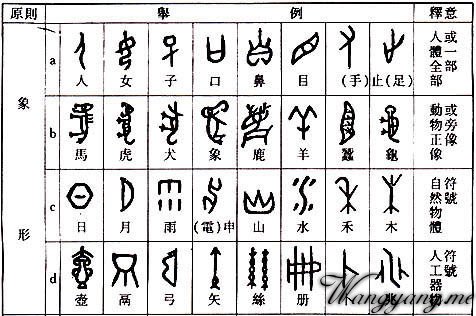 原則 舉 例 釋意
象
形
a
人 女 子 口 鼻 目 (手) 止(足)
人體全部
或一部
b
馬 虎 犬 象 鹿 羊 蠶 龜
動物正像
或旁像
c
日 月 雨 (電)申 山 水 禾 木
自然物體
符號
d
壺 鬲 弓 矢 絲 册
人工器物
符號
Wangyang.me